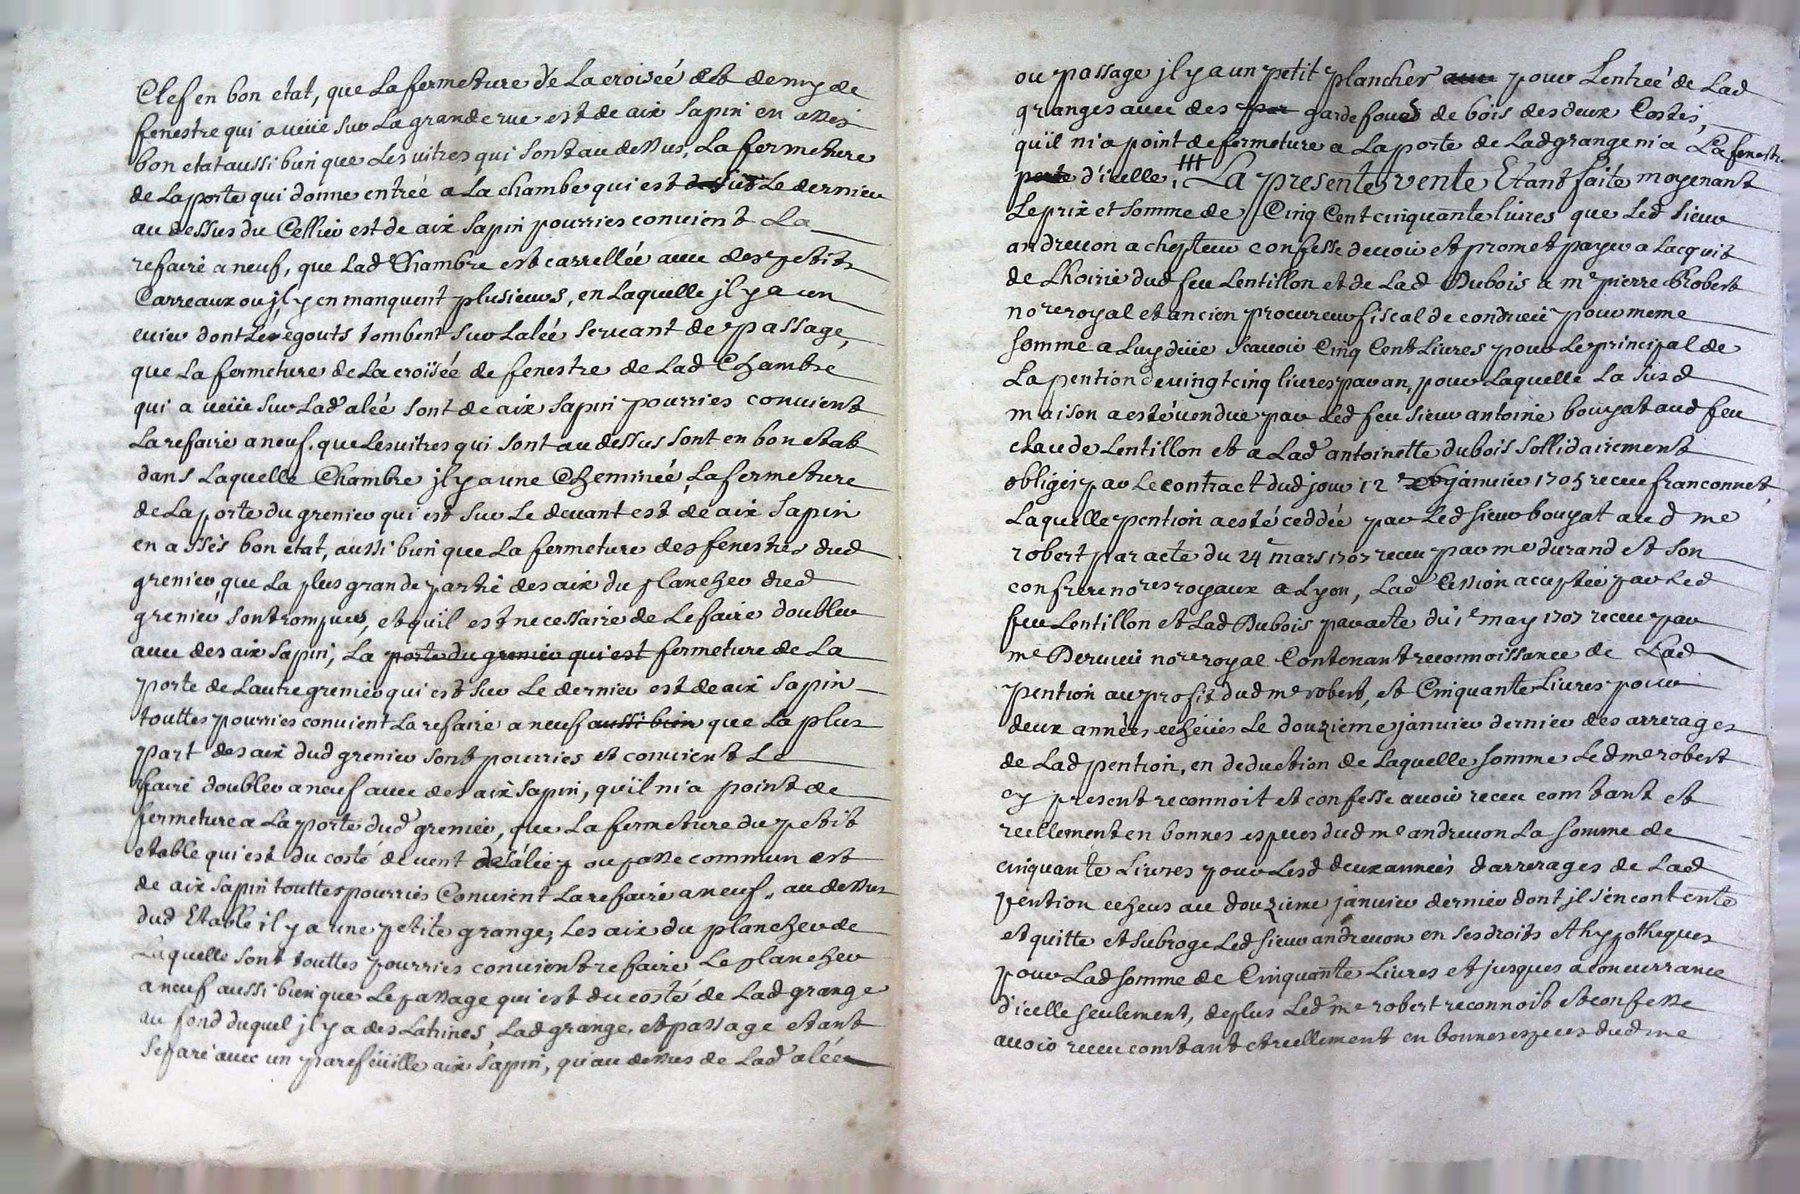 Clef en bon etat, que La fermeture de La croiseé et demy de
fenestre qui a veüe sur La grande rue est de aix sapin en assés
bon etat aussi bien que Les vitres qui sont au dessus, La fermeture
de La porte qui donne entreé a La chambe qui est Le dernier
au dessus du Cellier est de aix sapin pourries convient La
refaire a neuf, que Lad Chambre est carrelleé avec des petits
Carreaux ou jl y en manquent plusieurs, en Laquelle jl y a un
evier dont Les egouts tombent sur Laleé servant de passage,
que La fermeture de La croiseé de fenestre de Lad Chambre
qui a veüe sur Lad aleé sont de aix sapin pourries convient
La refaire a neuf. que Les vitres qui sont au dessus sont en bon etat
dans Laquelle Chambre jl y a une Cheminée, La fermeture
de La porte du grenier qui est sur Le devant est de aix sapin
en assés bon etat, aussi bien que La fermeture des fenestres dud
grenier, que La plus grande partie des aix du plancher dud
grenier sont rompues, et qu'il est necessaire de Le faire doubler
avec des aix sapin, La porte du grenier qui est fermeture de La
porte de Lautre grenier qui est sur Le dernier est de aix sapin
touttes pourries convient La refaire a neuf aussi bien que La plus
part des aix dud grenier sont pourries et convient Le
faire doubler a neuf avec des aix sapin, qu'il ni a point de
fermeture a La porte dud grenier, que La fermeture du petit
etable qui est du costé de vent ou passe commun est
de aix sapin touttes pourries Convient La refaire a neuf. au dessus
dud Etable il y a une petite grange, Les aix du plancher de
Laquelle sont touttes pourries convient refaire Le plancher
a neuf aussi bien que Le passage qui est du costé de Lad grange
au fond duquel jl y a des Latrines, Lad grange et passage etant
separé avec un parefeüille aix sapin, qu'au dessus de Lad aleé
ou passage jl y a un petit plancher pour Lentreé de Lad
grange avec des gardefous de bois des deux Costés,
qu'il ni a point de fermeture a La porte de Lad grange ni a La fenestre
porte d'icelle, La presente vente Etant faite moyenant
Le prix et somme de Cinq Cent cinquante livres que Led sieur
andrevon achepteur confesse devoir et promet payer a Lacquit
de Lhoirie dud feu Lentillon et de Lad Dubois a me pierre Robert
nore royal et ancien procureur fiscal de condrieu pour meme
somme a Luy düe scavoir Cinq Cent Livres pour Le principal de
La pention de vingt cinq livres par an, pour Laquelle La susd
maison a esté vendue par Led feu sieur antoine bouyat aud feu
claude Lentillon et a Lad antoinette dubois sollidairement
obligés par Le contract dud jour 12e janvier 1705 receu franconnet,
Laquelle pention a esté ceddeé par Led sieur bouyat aud me
robert par acte du 24e mars 1707 receu par me durand et son
confrere nores royaux a Lyon, Lad Cession acceptée par Led
feu Lentillon et Lad Dubois par acte du 1e may 1707 receu par
me nore royal Contenant reconnoissance de Lad
pention au profit dud me robert, et Cinquante Livres pour
deux années echeües Le douzieme janvier dernier des arrerages
de Lad pention, en deduction de Laquelle somme Led me robert
cy present reconnoit et confesse avoir receu comtant et
reellement en bonnes especes dud me andrevon La somme de
cinquante Livres pour Lesd deux années d'arrerages de Lad
pention echeus au douzieme janvier dernier dont jl s'en contente
et quitte et subroge Led sieur andrevon en ses droits et hypotheques
pour Lad somme de Cinquante Livres et jusques a concurrance
d'icelle seulement, de plus Led me robert reconnoit et confesse
avoir receu comtant et reellement en bonnes especes dud me